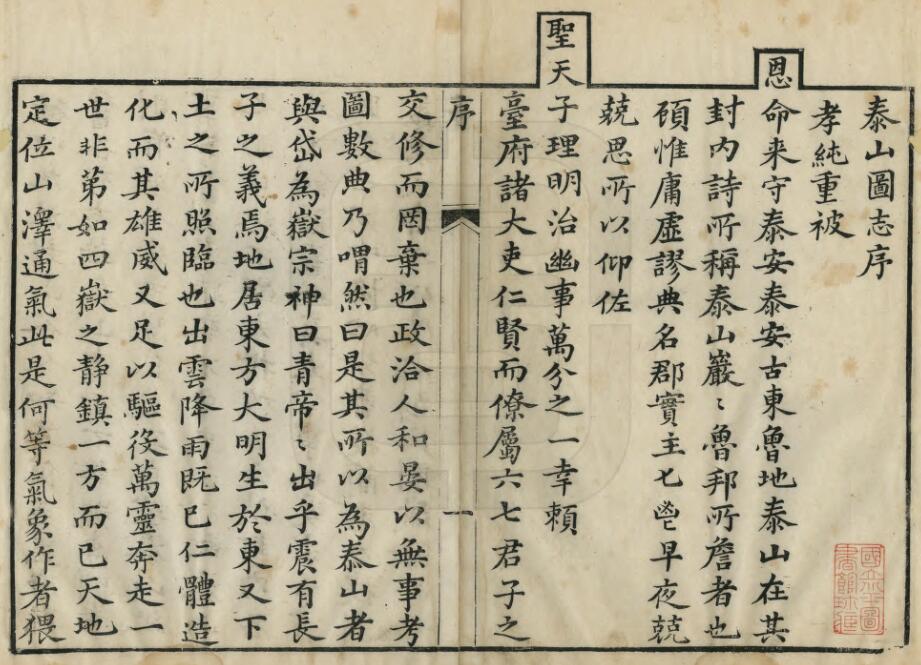 泰山圖志序
孝純重被
恩命来守泰安泰安古東魯地泰山在其
封内詩所稱泰山巖〻魯邦所詹者也
頋惟庸虚謬典名郡實主匕鬯早夜兢
兢思所以仰佐
聖天子理明治幽事萬分之一幸賴
臺府諸大吏仁賢而僚屬六七君子之
序
一
交修而罔棄也政洽人和晏以無事考
圖數典乃喟然曰是其所以為泰山者
與岱為嶽宗神曰青帝〻出乎震有長
子之義焉地居東方大明生於東又下
土之所照臨也出雲降雨既已仁體造
化而其雄威又足以驅役萬靈奔走一
世非第如四嶽之静鎮一方而已天地
定位山澤通氣此是何等氣象作者猥